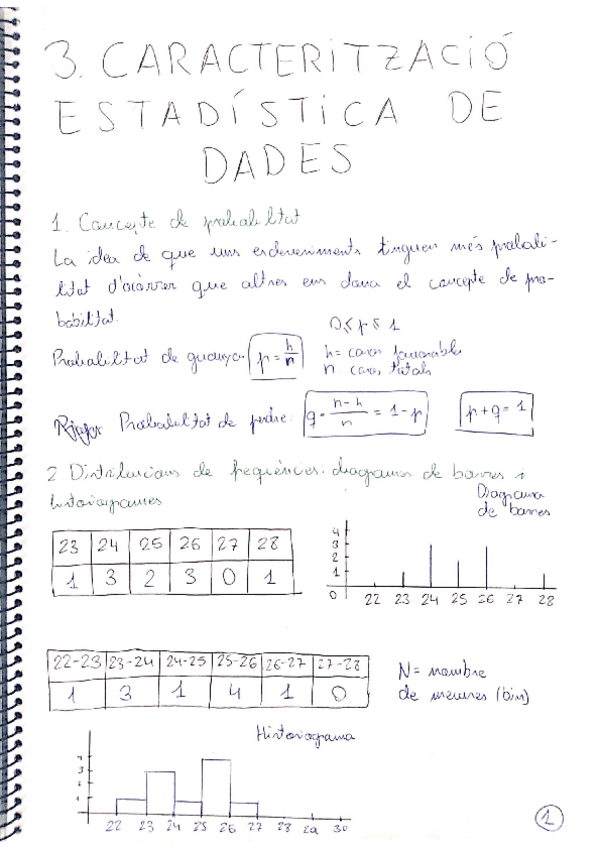 3. CARACTERITZACIÓ
ESTADÍSTICA DE
DADES
1. Concepte de probabilitat
La idea de que uns esdeveniments tinguen més probabi-
litat d'ocórrer que altres ens dona el concepte de pro-
babilitat.
0 ≤ p ≤ 1
Probabilitat de guanyar p = h/n
h = casos favorables
n casos totals
Probabilitat de perdre: q = (n-h)/n = 1-p
p+q=1
2 Distribucions de freqüències: diagrames de barres i
histogrames
Diagrama
de barres
23 24 25 26 27 28
1 3 2 3 0 1
4
3
2
1
0 22 23 24 25 26 27 28
22-23 23-24 24-25 25-26 26-27 27-28
1 3 1 4 1 0
N = nombre
de mesures (bin)
Histograma
22 23 24 25 26 27 28 29 30
1